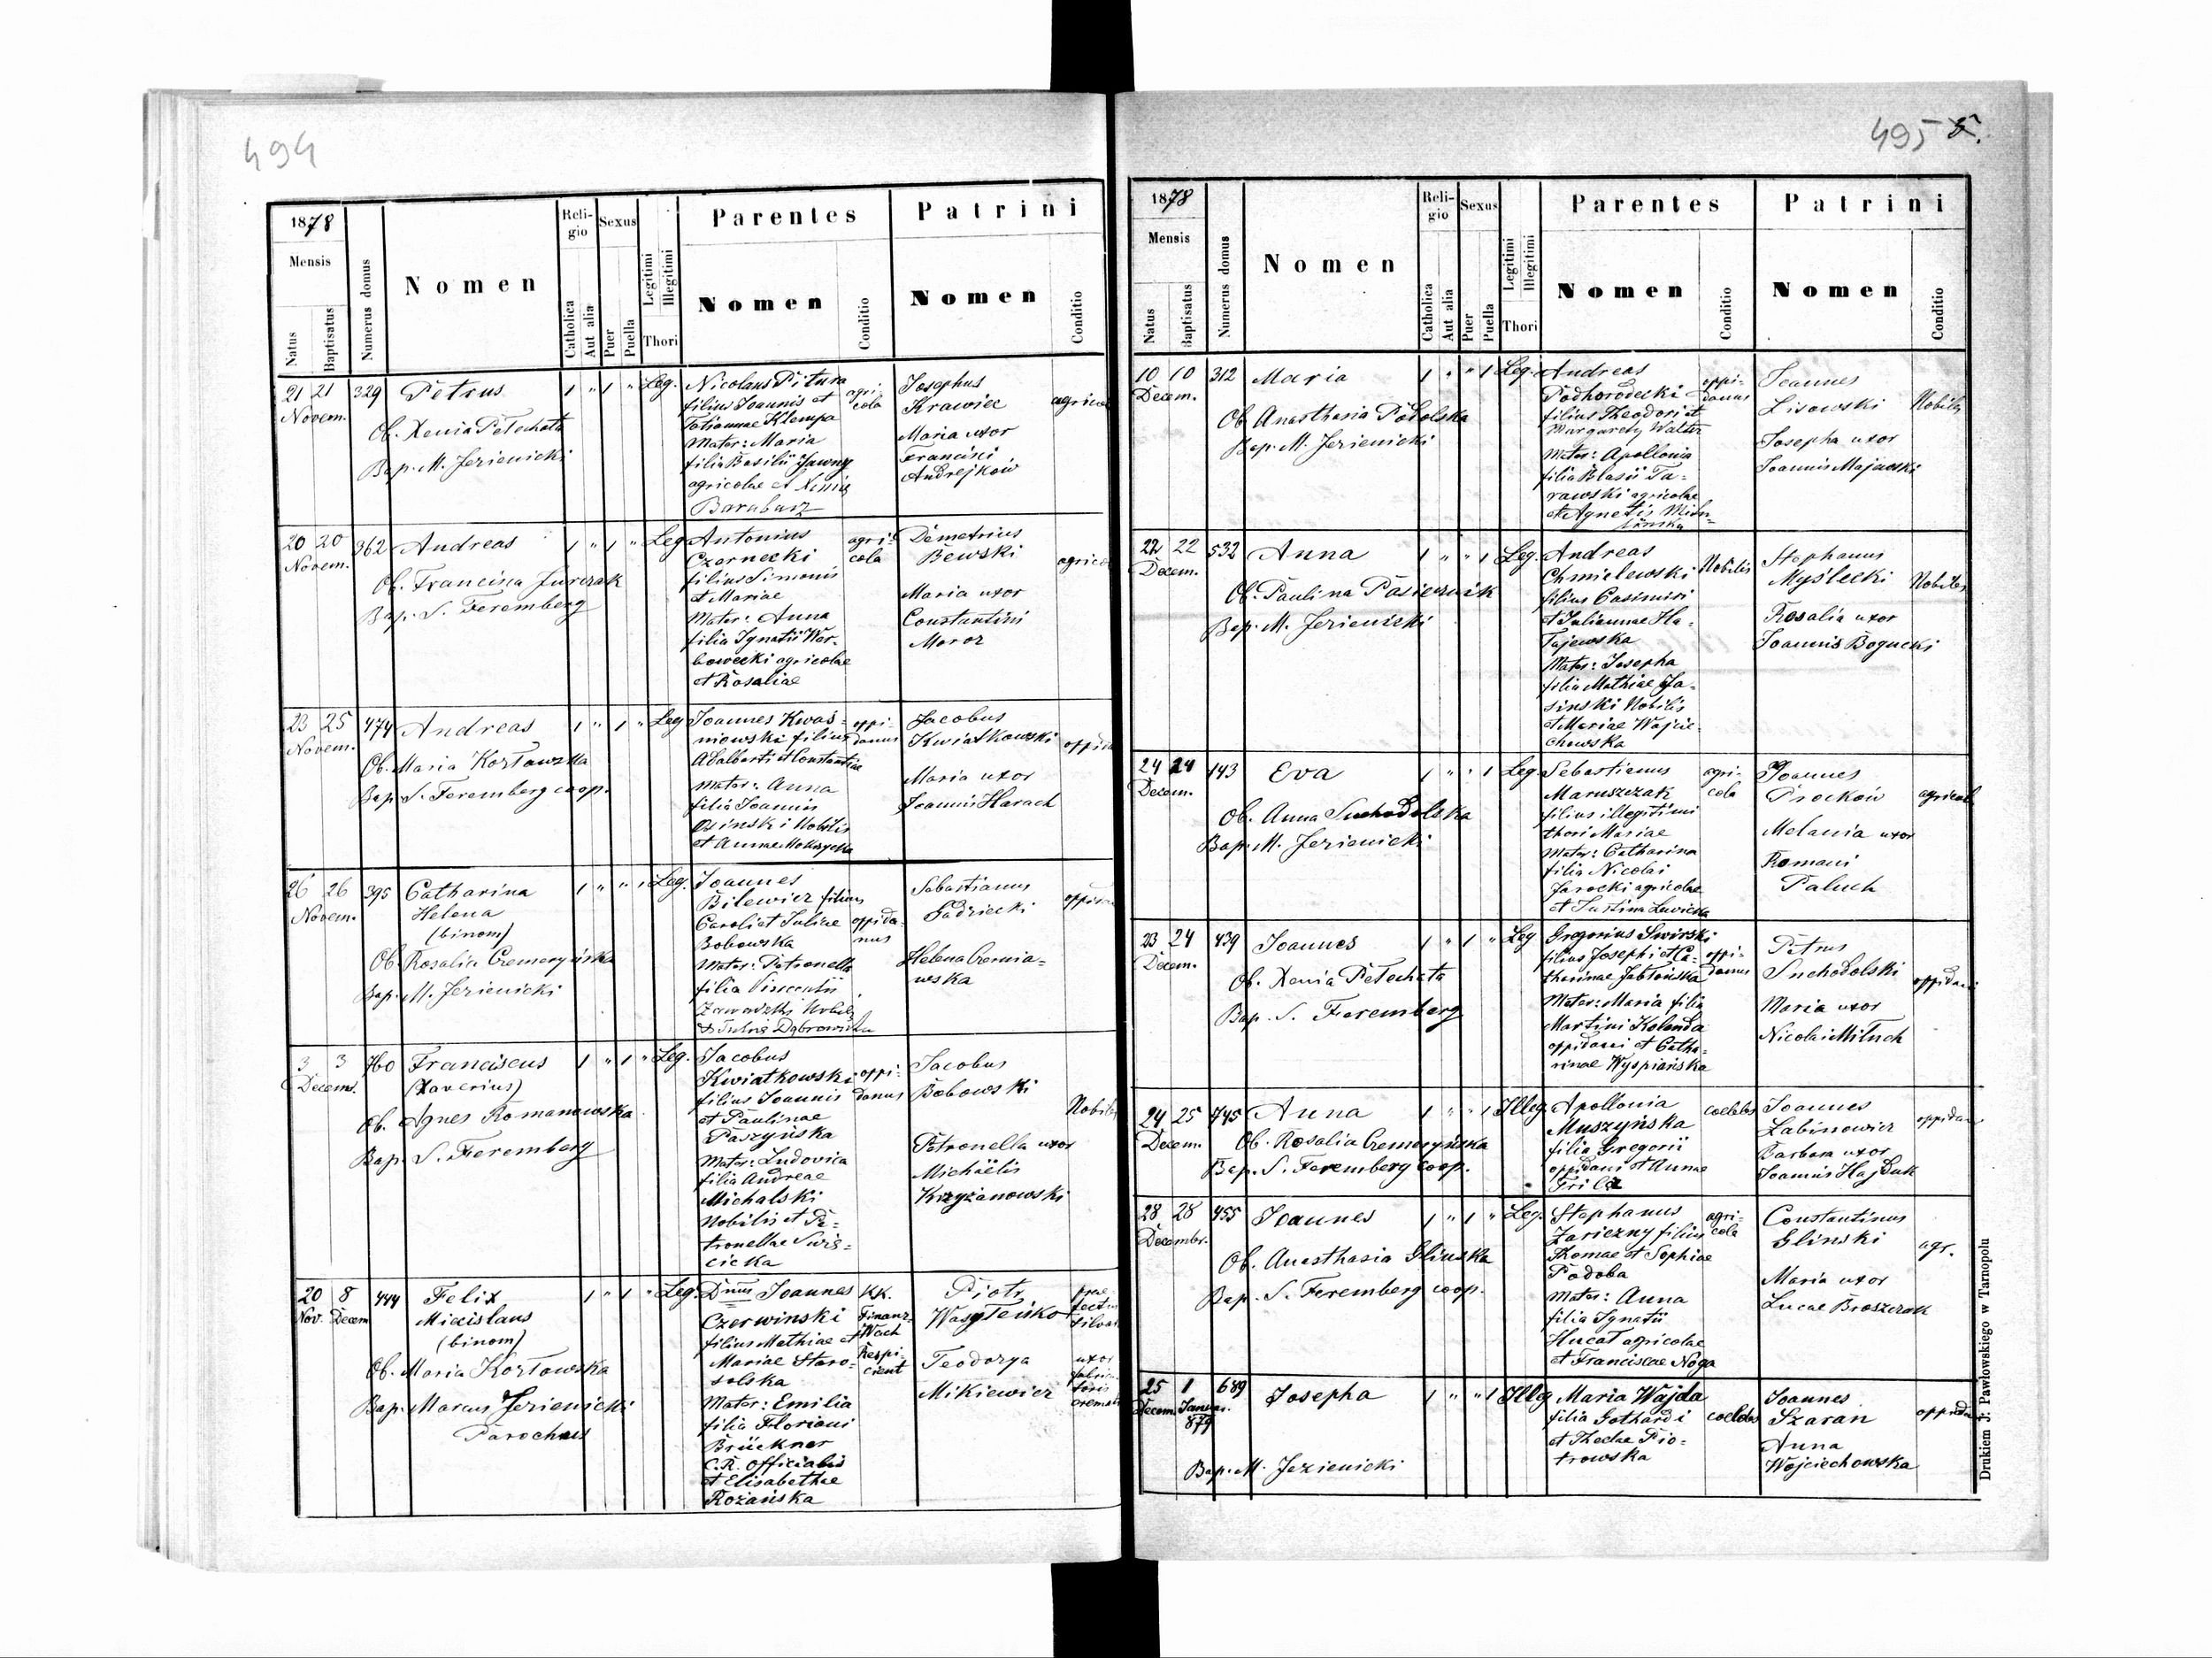 494
1878
Mensis
Natus
Baptisatus
Numerus domus
Nomen
Religio
Catholica
Aut alia
Sexus
Puer
Puella
Legitimi
Illegitimi
Thori
Parentes
Nomen
Conditio
Patrini
Nomen
Conditio
21 21 329 Petrus 1 " 1 " Leg.
Novem.
Ob. Xenia Petechata
Bap. M. Jezienicki
Nicolaus Pitura
filius Joannis et
Tatiannae Klempa
Mater: Maria
filia Basilii Jawny
agricolae et Xeniae
Barabasz
agri-
cola
Josephus
Krawiec
Maria uxor
Francisci
Andrejków
20 20 362 Andreas 1 " 1 " Leg
Novem.
Ob. Francisca Jurczak
Bap. S. Feremberg
Antonius
Czernecki
filius Simonis
et Mariae
Mater: Anna
filia Ignatii Wer-
bowecki agricolae
et Rosaliae
agri-
cola
Demetrius
Bewski
Maria uxor
Constantini
Moroz
23 25 474 Andreas 1 " 1 " Leg
Novem.
Ob. Maria Kozłowska
Bap. S. Feremberg coop.
Joannes Kwaś-
niowski filius
Adalberti et Constantiae
Mater: Anna
filia Joannis
Osinski Nobilis
et Annae
oppi-
danus
Jacobus
Kwiatkowski
Maria uxor
Joannis Harach
26 26 395 Catharina 1 " " 1 Leg.
Novem.
Helena
(binom)
Ob. Rosalia Cremeryńska
Bap. M. Jezienicki
Joannes
Bilewicz filius
Caroli et Juliae
Bobowska
Mater: Petronella
filia Vincentii
Zawadzki Nobilis
et Dąbrowicka
oppida-
nus
Sebastianus
Gadziecki
Helena Czernia-
wska
3 3 760 Franciscus 1 " 1 " Leg.
Decem.
(Xaverius)
Ob. Agnes Romanowska
Bap. S. Feremberg
Jacobus
Kwiatkowski
filius Joannis
et Paulinae
Paszyńska
Mater: Ludovica
filia Andreae
Michalski
Nobilis et Pe-
tronellae Swis-
cicka
oppi-
danus
Jacobus
Bobowski
Petronella uxor
Michäelis
Krzyżanowski
20 8 444 Felix 1 " 1 " Leg.
Nov. Decem
Miecislaus
(binom)
Ob. Maria Kozłowska
Bap. Marcus Jezienicki
Parochus
Dnus Joannes
Czerwinski
filius Mathiae et
Mariae Staro-
solska
Mater: Emilia
filia Floriani
Brückner
C.R. officialis
et Elisabethae
Rożańska
KK.
Finanz-
Wach
Respi-
cient
Piotr
Wasyleńko
Teodozya
Mikiewicz
495
1878
Mensis
Natus
Baptisatus
Numerus domus
Nomen
Religio
Catholica
Aut alia
Sexus
Puer
Puella
Legitimi
Illegitimi
Thori
Parentes
Nomen
Conditio
Patrini
Nomen
Conditio
10 10 312 Maria 1 " " 1 Leg.
Decem.
Ob. Anasthasia Podolska
Bap. M. Jezienicki
Andreas
Podhorodecki
filius Theodori et
Margarety Walter
Mater: Apollonia
filia Blasii Ta-
rawski agricolae
et Agnetis
oppi-
danus
Joannes
Lisowski
Josepha uxor
Joannis Majewski
Nobiles
22 22 532 Anna 1 " " 1 Leg.
Decem.
Ob. Paulina Pasiecznik
Bap. M. Jezienicki
Andreas
Chmielewski
filius Casimiri
et Juliannae Ha-
łajewska
Mater: Josepha
filia Mathiae Ja-
sinski Nobilis
et Mariae Wojcie-
chowska
Nobilis
Stephanus
Myślecki
Rosalia uxor
Joannis Bogucki
Nobiles
24 24 143 Eva 1 " " 1 Leg.
Decem.
Ob. Anna Suchodolska
Bap. M. Jezienicki
Sebastianus
Maruszczak
filius illegitimi
thori Mariae
Mater: Catharina
filia Nicolai
Jarocki agricolae
et Justina Lewicka
agri-
cola
Joannes
Prockow
Melania uxor
Romani
Paluch
23 24 439 Joannes 1 " 1 " Leg
Decem.
Ob. Xenia Petechata
Bap. S. Feremberg
Gregorius Swirski
filius Josephi et Ca-
tharinae Jabłońska
Mater: Maria filia
Martini Kolenda
oppidani et Catha-
rinae Wyspiańska
oppi-
danus
Petrus
Suchodolski
Maria uxor
Nicolai Mituch
oppidani
24 25 745 Anna 1 " " 1 Illeg.
Decem.
Ob. Rosalia Cremeryńska
Bap. S. Feremberg coop.
Apollonia
Muszyńska
filia Gregorii
oppidani et Annae
coelebs
Joannes
Łabinowicz
Barbara uxor
Joannis Hajduk
28 28 455 Joannes 1 " 1 " Leg.
Decembr.
Ob. Anasthasia Glinska
Bap. S. Feremberg coop.
Stephanus
Zariczny filius
Thomae et Sophiae
Podoba
Mater: Anna
filia Ignatii
Hucał agricolae
et Franciscae Noga
agri-
cola
Constantinus
Glinski
Maria uxor
Lucae Broszczak
agr.
25 1 689 Josepha 1 " " 1 Illeg
Decem. Januar.
879
Bap. M. Jezienicki
Maria Wajda
filia Gothardi
et Theclae Pio-
trowska
coelebs
Joannes
Szaran
Anna
Wojciechowska
Drukiem J. Pawłowskiego w Tarnopolu